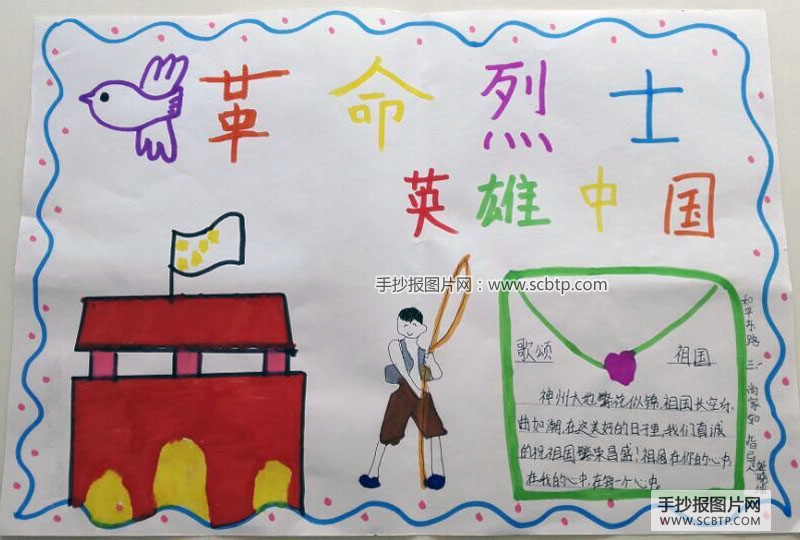 革命烈士
英雄中国
手抄报图片网：www.scbtp.com
歌颂 祖国
神州大地繁花似锦,祖国长空乐
曲如潮,在这美好的日子里,我们真诚
的祝祖国繁荣昌盛!祖国在你的心中,
在我的心中,在每一个心中
和平东路 三
指导人
手抄报图片网
WWW.SCBTP.COM